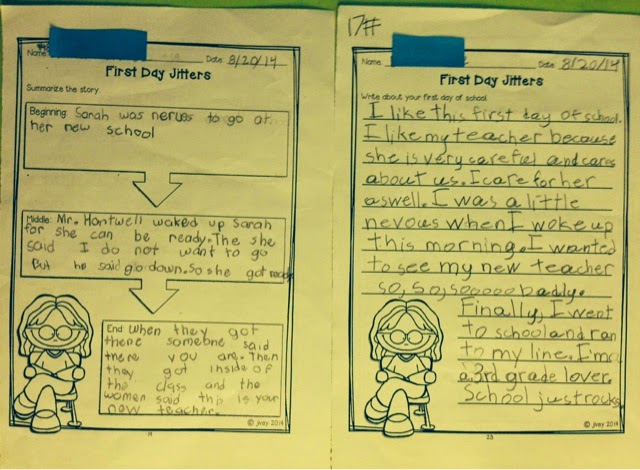 Name
Date 8/20/14
First Day Jitters
Summarize the story
Beginning: Sarah was nerues to go at
her new school
Middle: Mr. Hontwell waked up Sarah
for she can be ready.The she
said I do not want to go
But he said go down.So she got ready
End When they got
there someone said
there you are.Then
they got inside of
the class and the
women said this is your
new teacher.
© jvey 2014
19
17#
Name
Date 8/20/14
First Day Jitters
Write about your first day of school
I like this first day of school.
I like my teacher because
she is very careful and cares
about us. I care for her
aswell. I was a little
nevous when I woke up
this morning. I wanted
to see my new teacher
so, so, sooooo baddly.
Finally, I went
to school and ran
to my line. I'm
a 3rd grade lover.
School just rocks
© jvey 2014
23